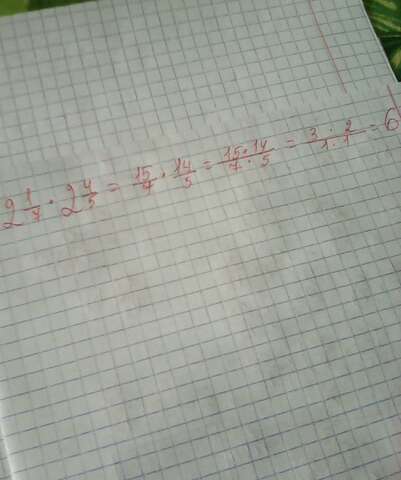 2 1/7 · 2 4/5 = 15/7 · 14/5 = 15·14/7·5 = 3·2/1·1 = 6